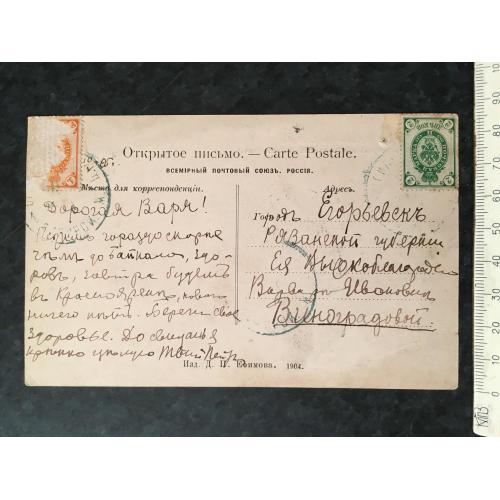 Открытое письмо. — Carte Postale.
ВСЕМІРНЫЙ ПОЧТОВЫЙ СОЮЗЪ. РОССІЯ.
Мѣсто для корреспонденціи.
Адресъ.
Дорогая Варя!
гораздо скорѣе
чѣмъ до Байкала, здо-
ровъ, завтра будемъ
въ Красноярскѣ, новаго
ничего нѣтъ. Береги свое
здоровье. До свиданья
крѣпко цѣлую Твой Петръ
Городъ Егорьевскъ
Рязанской губерніи
Ея Высокоблагородію
Варваръ Ивановнѣ
Виноградовой.
Изд. Д. П. Ефимова. 1904.